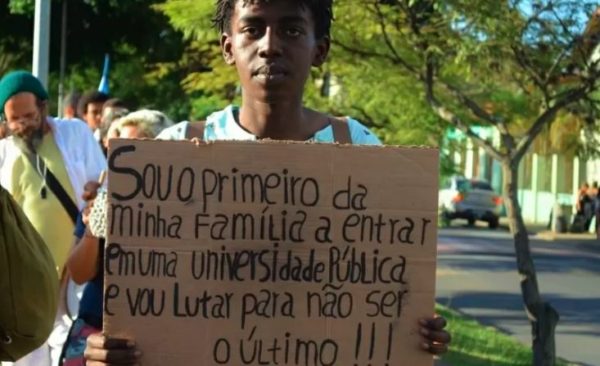 Sou o primeiro da
minha família a entrar
em uma universidade Pública
e vou Lutar para não ser
o último !!!